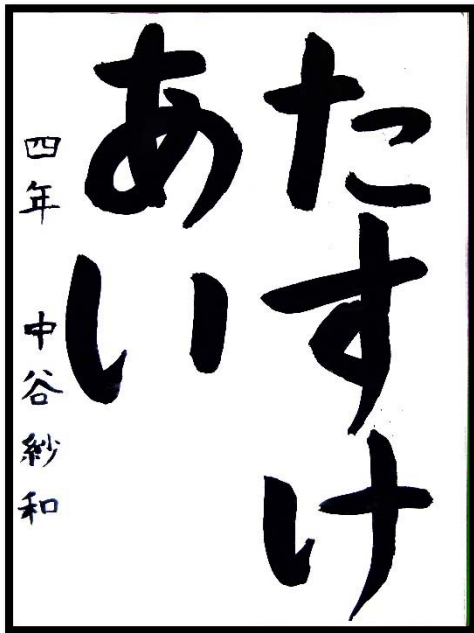 たすけ
あい
四年 中谷紗和